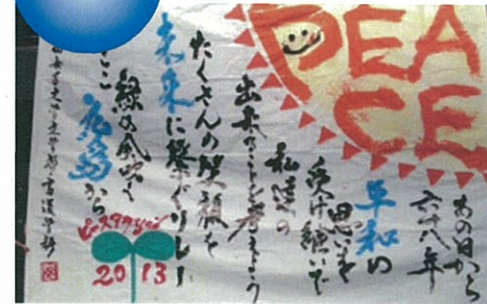 PEA
CE
あの日から
六十八年
平和の
思いを
受け継いで
私達の
出来ることを考えよう
たくさんの笑顔を
未来に繋ぐリレー
緑の風吹く
ここ広島から
ピースアクション
2013